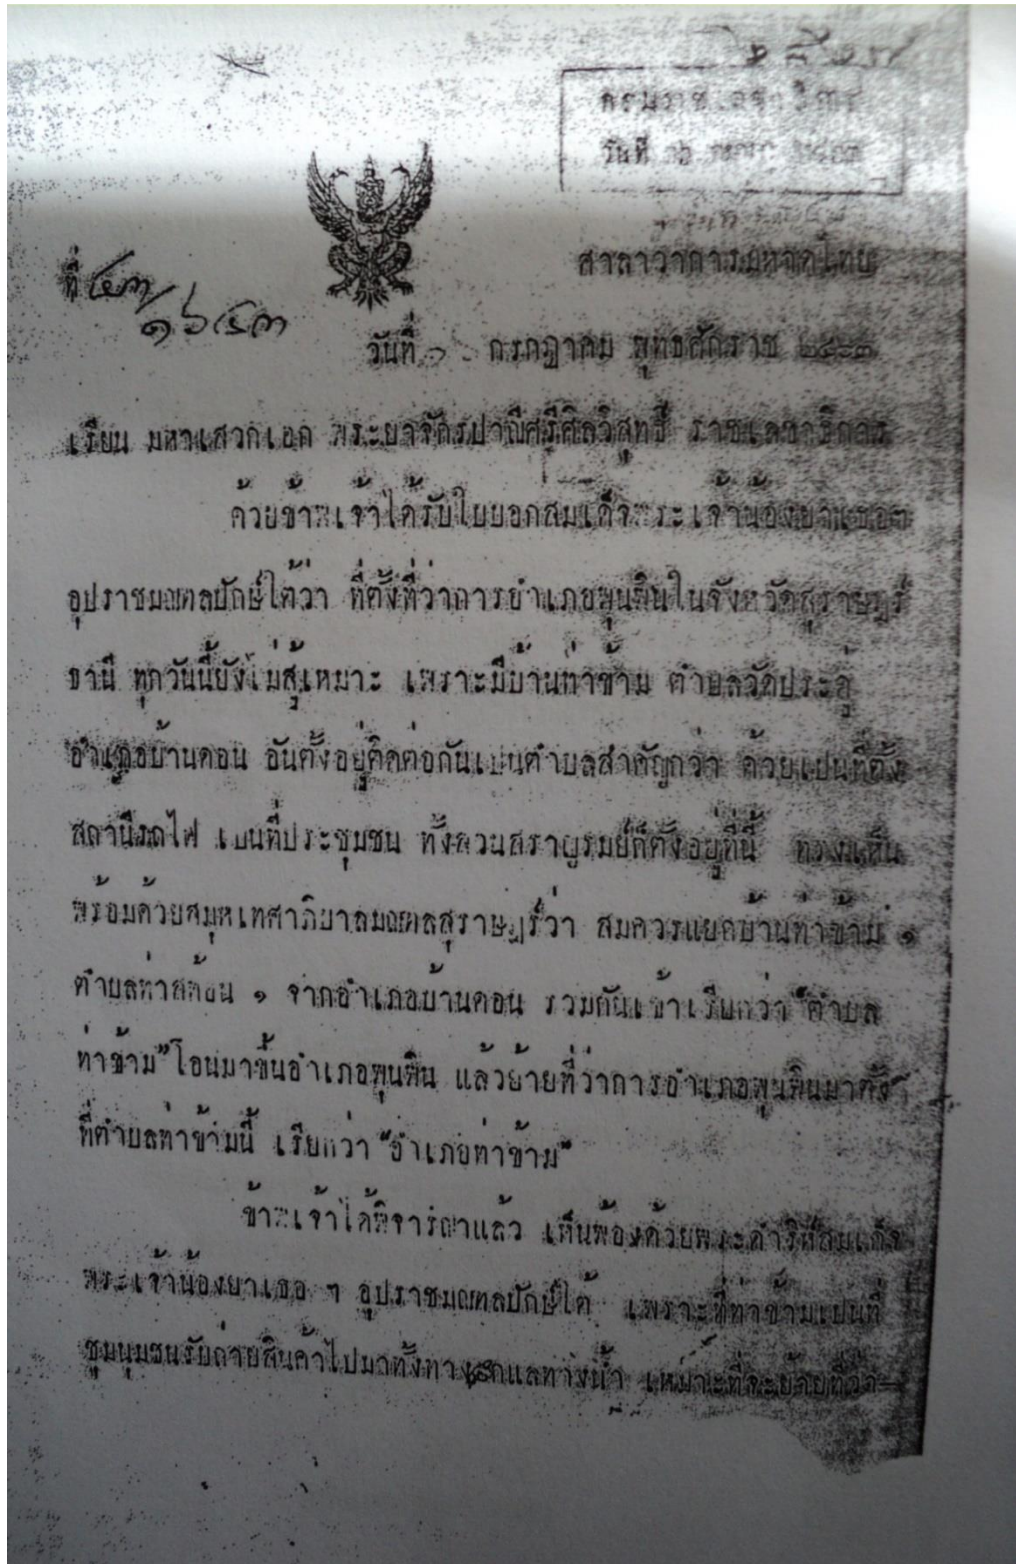 กรมราชเลขาธิการ
วันที่ ๑๖
ศาลาว่าการมหาดไทย
ที่ ๔๓/๑๖๔๓
วันที่ ๑ กรกฎาคม พุทธศักราช
เรียน มหาเสวกเอก พระยาจักรปาณีศรีศิลวิสุทธิ์ ราชเลขาธิการ
ด้วยข้าพเจ้าได้รับใบบอกสมเด็จพระเจ้าน้องยาเธอฯ
อุปราชมณฑลปักษ์ใต้ว่า ที่ตั้งที่ว่าการอำเภอพุนพินในจังหวัดสุราษฎร์
ธานี ทุกวันนี้ยังไม่สู้เหมาะ เพราะมีบ้านท่าข้าม ตำบลวัดประดู่
อำเภอบ้านดอน อันตั้งอยู่ติดต่อกันเปนตำบลสำคัญกว่า ด้วยเปนที่ตั้ง
สถานีรถไฟ เปนที่ประชุมชน ทั้งสวนสราญรมย์ก็ตั้งอยู่ที่นี้ ทรงเห็น
พร้อมด้วยสมุหเทศาภิบาลมณฑลสุราษฎร์ว่า สมควรแยกบ้านท่าข้าม ๑
ตำบลท่าสท้อน ๑ จากอำเภอบ้านดอน รวมกันเข้าเรียกว่า "ตำบล
ท่าข้าม" โอนมาขึ้นอำเภอพุนพิน แล้วย้ายที่ว่าการอำเภอพุนพินมาตั้ง
ที่ตำบลท่าข้ามนี้ เรียกว่า "อำเภอท่าข้าม"
ข้าพเจ้าได้พิจารณาแล้ว เห็นพ้องด้วยพระดำริห์สมเด็จ
พระเจ้าน้องยาเธอ ฯ อุปราชมณฑลปักษ์ใต้ เพราะที่ท่าข้ามเปนที่
ชุมนุมชนรับถ่ายสินค้าไปมาทั้งทางรถแลทางน้ำ เหมาะที่จะย้ายที่ว่า